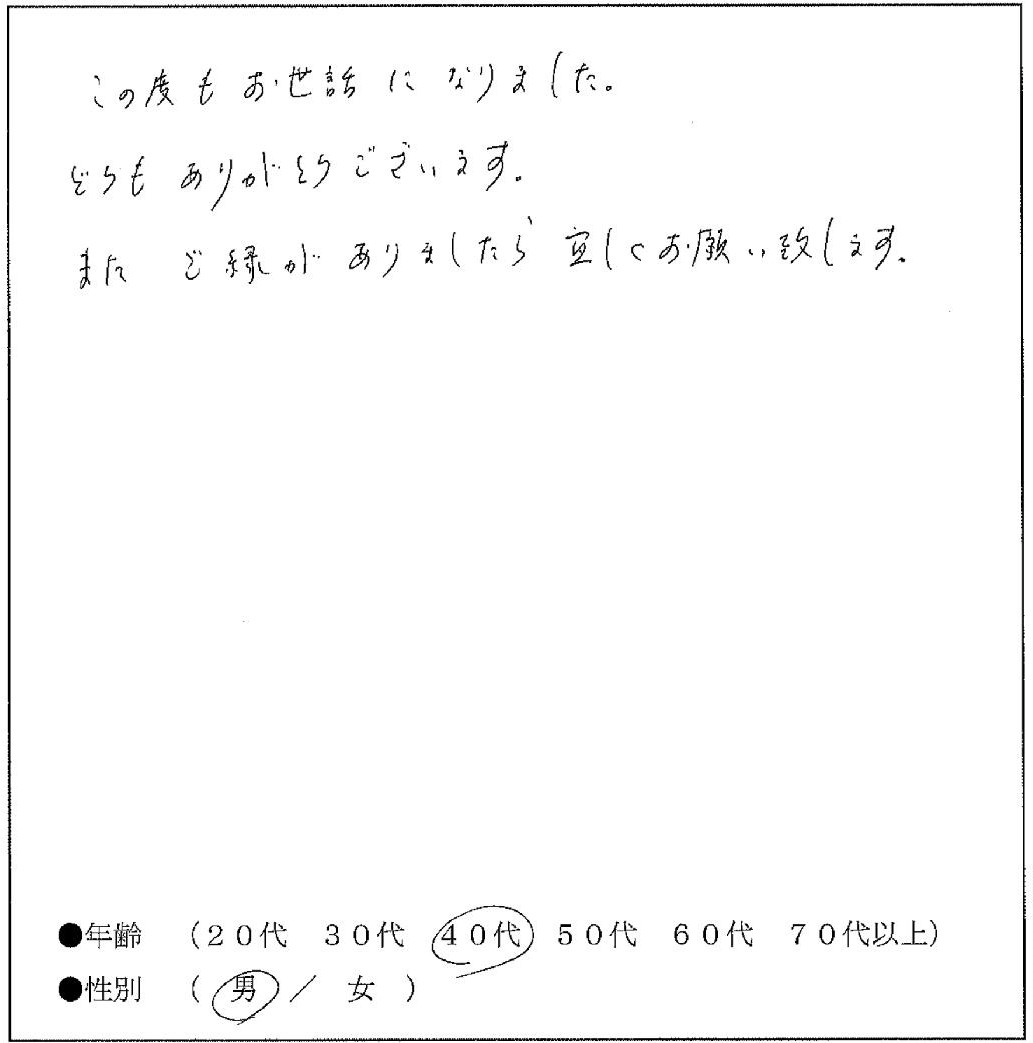 この度もお世話になりました。
どうもありがとうございます。
また ご縁がありましたら宜しくお願い致します。
●年齢 （２０代 ３０代 ４０代 ５０代 ６０代 ７０代以上）
●性別 （ 男 ／ 女 ）